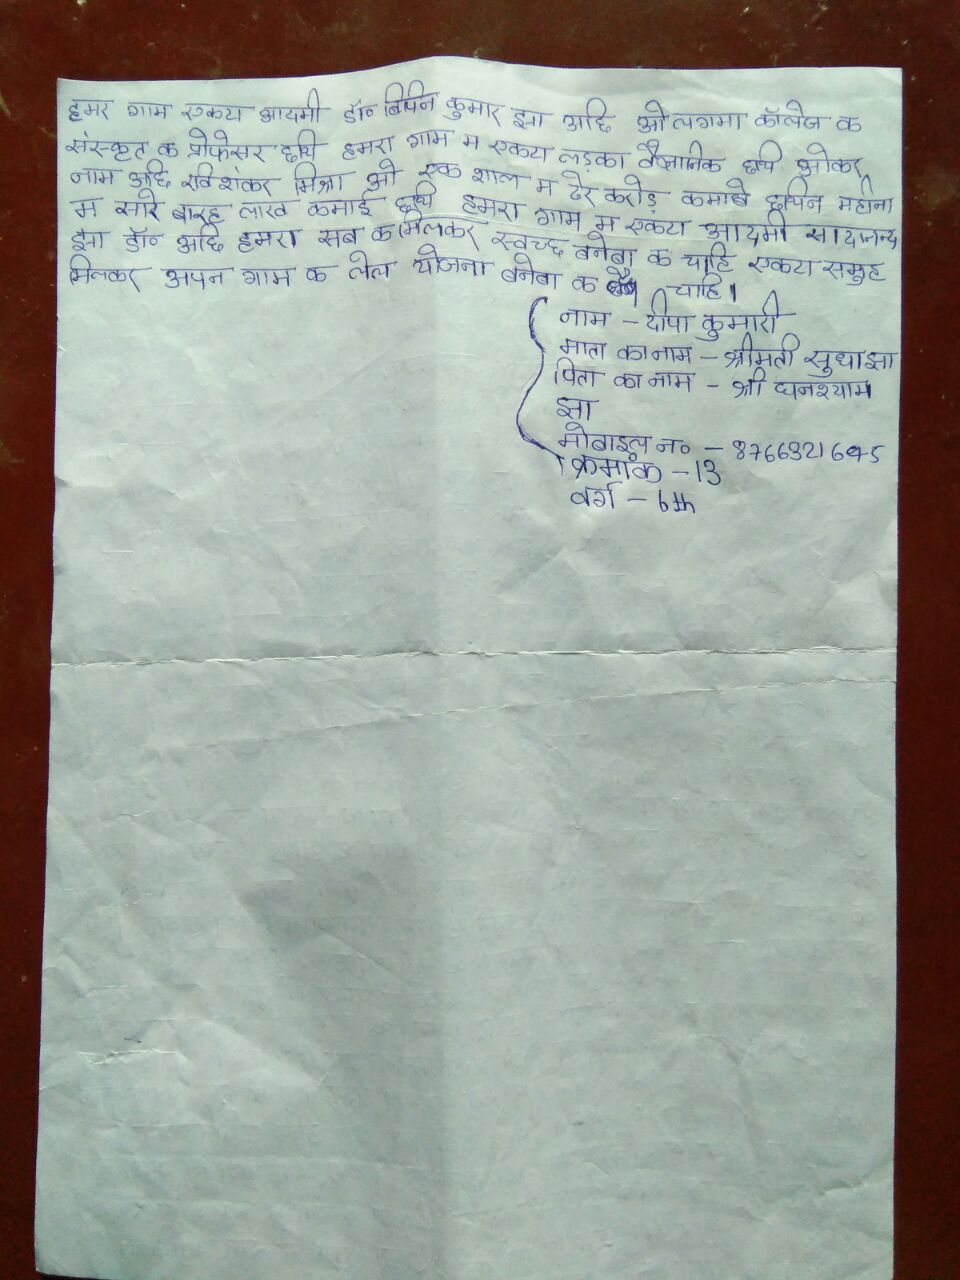 हमर गाम एकटा आदमी डॉ॰ बिपिन कुमार झा अछि ओ लगमा कॉलेज क
संस्कृत क प्रोफेसर छथि हमरा गाम म एकटा लड़का वैज्ञानिक छथि ओकर
नाम अछि रविशंकर मिश्रा ओ एक शाल म ढेर करोड़ कमाबे छथिन महीना
म सारे बारह लाख कमाई छथि हमरा गाम म एकटा आदमी सादानन्द
झा डॉ॰ अछि हमरा सब क मिलकर स्वच्छ बनेबा क चाहि एकटा समुह
मिलकर अपन गाम क लेल योजना बनेबा क चाहि।
नाम – दीपा कुमारी
माता का नाम – श्रीमती सुधा झा
पिता का नाम – श्री घनश्याम
झा
मोबाइल न॰ – 8766321695
क्रमांक – 13
वर्ग – 6th